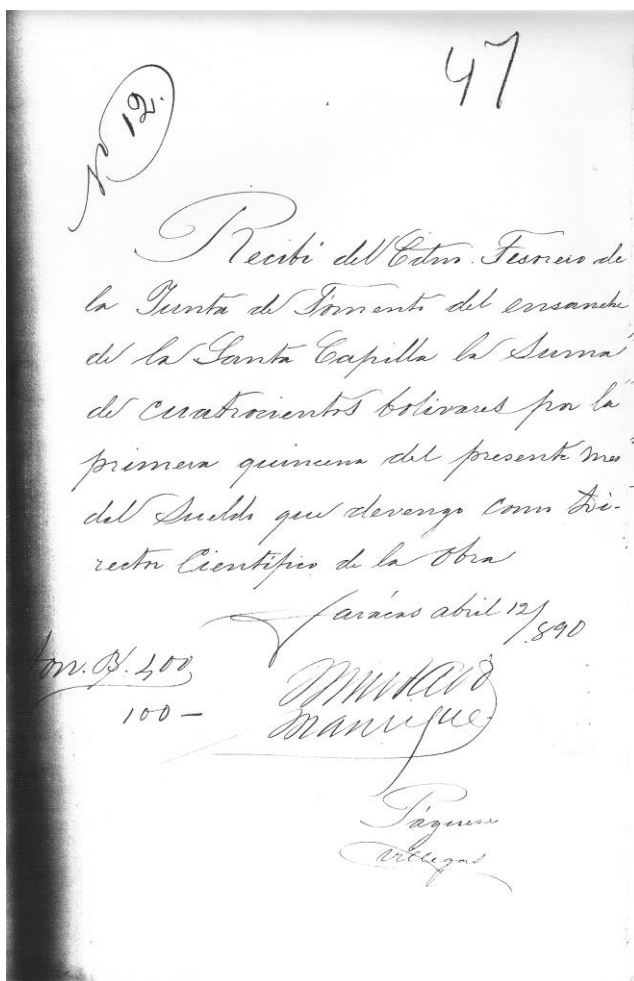 47
N 12
Recibí del Cdno. Tesorero de
la Junta de Fomento del ensanche
de la Santa Capilla la suma
de cuatrocientos bolívares por la
primera quincena del presente mes
del sueldo que devengo como Di-
rector Científico de la Obra
Carácas abril 12/890
Son. B/. 400
100 —
Manrique
Páguese
Villegas